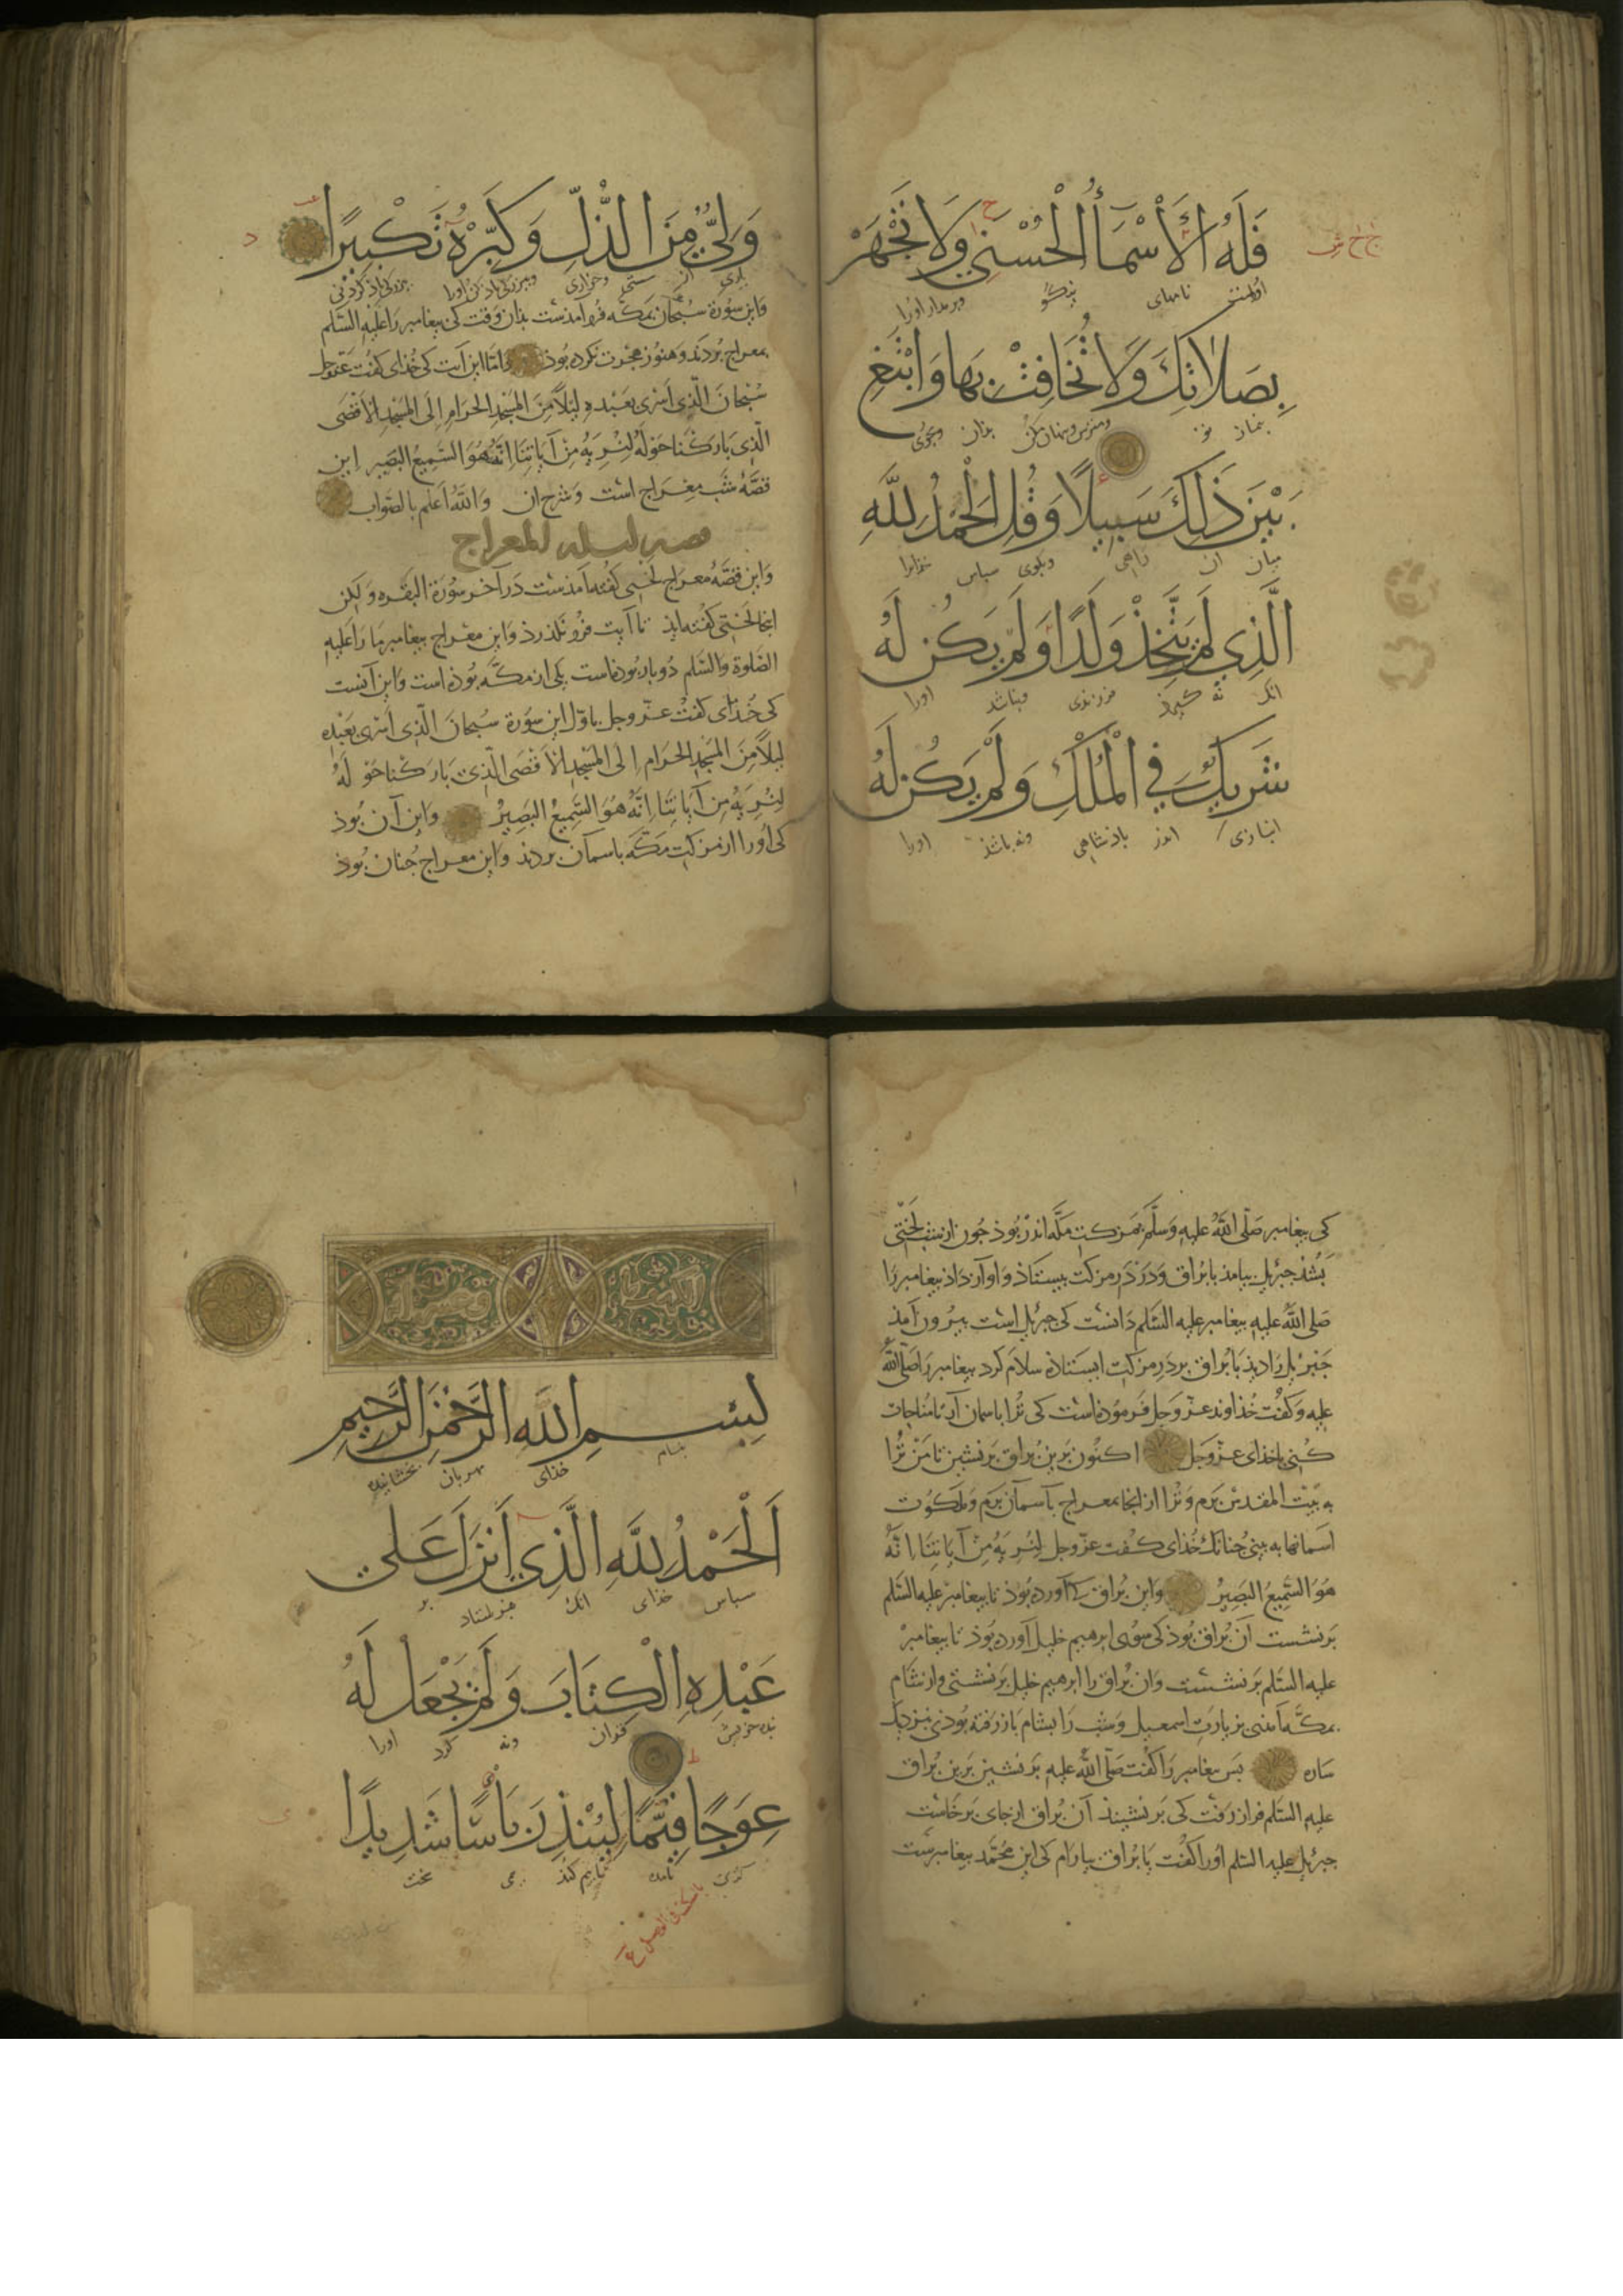 فَلَهُ الْأَسْمَاءُ الْحُسْنَى وَلَا تَجْهَرْ
اوراست نامهای نیکو وبرمدار اورا
بِصَلَاتِكَ وَلَا تُخَافِتْ بِهَا وَابْتَغِ
بنماز تو بذان وبجوی
بَيْنَ ذَلِكَ سَبِيلًا وَقُلِ الْحَمْدُ لِلَّهِ
میان ان راهی وبکوی سباس خذایرا
الَّذِي لَمْ يَتَّخِذْ وَلَدًا وَلَمْ يَكُنْ لَهُ
انک نه کیرذ فرزندی ونباشد اورا
شَرِيكٌ فِي الْمُلْكِ وَلَمْ يَكُنْ لَهُ
انبازی اندر باذشاهی ونه باشذ اورا
وَلِيٌّ مِنَ الذُّلِّ وَكَبِّرْهُ تَكْبِيرًا
یاری از وخواری
واین سورة سبحان بمکه فرو آمذست بذان وقت کی پیغامبر را علیه السلم
بمعراج بردند وهنوز هجرت نکرده بوذ واما این آیت کی خذای کفت عزوجل
سُبْحَانَ الَّذِي أَسْرَى بِعَبْدِهِ لَيْلًا مِنَ الْمَسْجِدِ الْحَرَامِ إِلَى الْمَسْجِدِ الْأَقْصَى
الَّذِي بَارَكْنَا حَوْلَهُ لِنُرِيَهُ مِنْ آيَاتِنَا إِنَّهُ هُوَ السَّمِيعُ الْبَصِيرُ این
قصّه شب معراج است وشرح ان والله اعلم بالصّواب
قصه لیلة المعراج
واین قصّه معراج لختی کفته آمذست در آخر سورة البقره ولکن
اینجا لختی کفته ایذ تا آیت فرو نکذرذ واین معراج بیغامبر ما را علیه
الصلوة والسلم دو بار بوذه است یکی از مکّه بوذه است واین آنست
کی خذای کفت عزّ وجل باوّل این سورة سُبحانَ الّذی أسری بعَبْدِه
لَيْلًا مِنَ الْمَسْجِدِ الْحَرَامِ إِلَى الْمَسْجِدِ الْأَقْصَى الَّذِي بَارَكْنَا حَوْلَهُ
لِنُرِيَهُ مِنْ آيَاتِنَا إِنَّهُ هُوَ السَّمِيعُ الْبَصِيرُ واین آن بوذ
کی اورا از مزکت مکّه باسمان بردند واین معراج جنان بوذ
کی بیغامبر صلّی الله علیه وسلّم بمزکت مکّه اندر بوذ جون از شب لختی
بشذ جبرئیل بیامذ با براق ودر در مزکت بیستاذ واواز داذ بیغامبر را
صلی الله علیه بیغامبر علیه السلم دانست کی جبرئیل است بیرون آمذ
جبرئیل را دیذ با براق بر در مزکت ایستاذه سلام کرد بیغامبر را صلّی الله
علیه وکفت خذاوند عزّ وجل فرموذه است کی ترا باسمان آیی تا مناجات
کنی با خذای عزّ وجل اکنون برین براق برنشین تا من ترا
به بیت المقدس برم وترا از انجا بمعراج باسمان برم وملکوت
اسمانها به بینی جنانک خذای کفت عزّ وجل لِنُرِيَهُ مِنْ آيَاتِنَا إِنَّهُ
هُوَ السَّمِيعُ الْبَصِيرُ واین براق کی آورده بوذ تا بیغامبر علیه السلم
برنشست ان براق بوذ کی سوی ابرهیم خلیل آورده بوذ تا بیغامبر
علیه السلم برنشست وان براق را ابرهیم خلیل برنشستی واز شام
بمکّه آمذی بزیارت اسمعیل وشب را بشام باز رفته بوذی نزدیک
ساره بس بیغامبر را کفت صلّی الله علیه برنشین برین براق
علیه السلم فراز رفت کی برنشیند آن براق از جای برخاست
جبرئیل علیه السلم اورا کفت یا براق بیارام کی این محمّد بیغامبرست
بِسْمِ اللَّهِ الرَّحْمَنِ الرَّحِيمِ
بنام خذای مهربان بخشاینده
الْحَمْدُ لِلَّهِ الَّذِي أَنْزَلَ عَلَى
سباس خذای انک بفرستاد بر
عَبْدِهِ الْكِتَابَ وَلَمْ يَجْعَلْ لَهُ
بنده خویش ونه کرد اورا
عِوَجًا قَيِّمًا لِيُنْذِرَ بَأْسًا شَدِيدًا
کژی تا بیم کند سخت